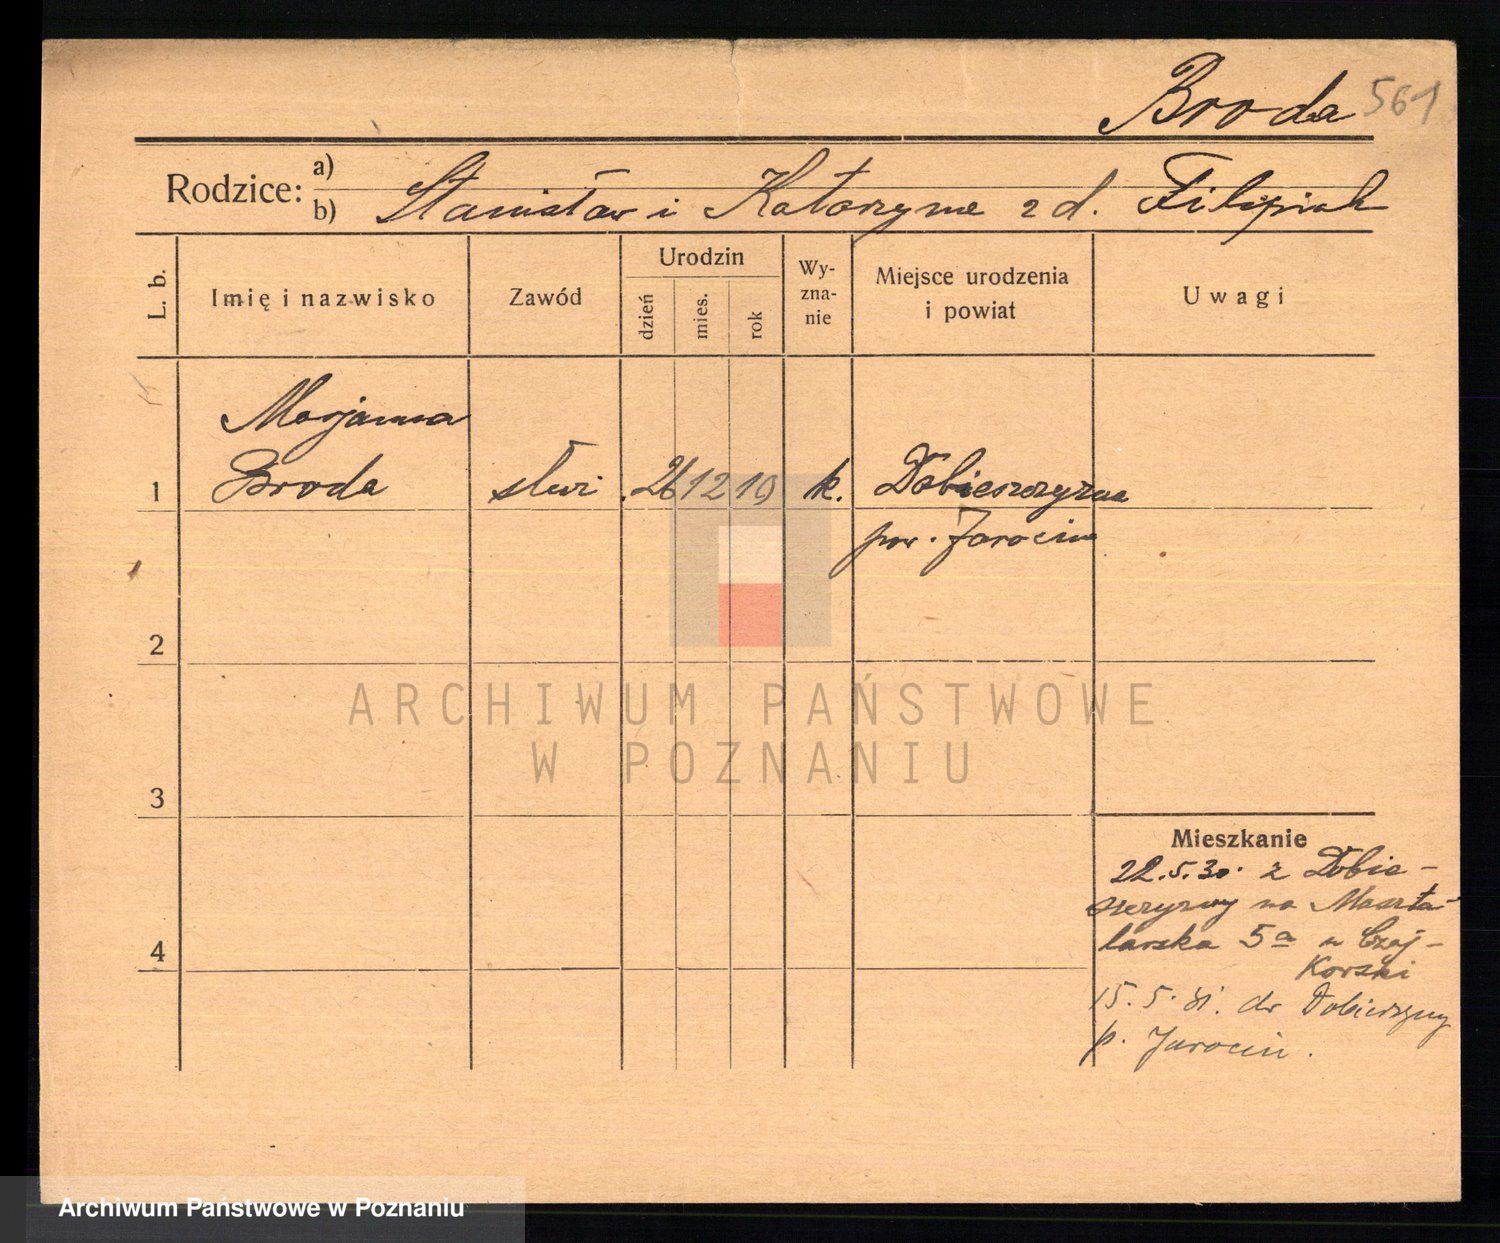 Broda 561
Rodzice: a)
b) Stanisław i Katarzyna z d. Filipiak
L. b.
Imię i nazwisko
Zawód
Urodzin
dzień
mies.
rok
Wy-
zna-
nie
Miejsce urodzenia
i powiat
Uwagi
Marjanna
1 Broda służ. 26 12 19 k. Dobieszczyzna
pow. Jarocin
2
3
4
Mieszkanie
22.5.30. z Dobie-
szczyzny na Maszta-
larska 5a u Czaj-
Korski
15.5.31. do Dobieszczyzny
p. Jarocin.
ARCHIWUM PAŃSTWOWE
W POZNANIU
Archiwum Państwowe w Poznaniu